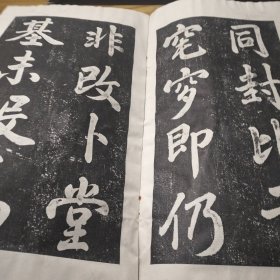 同封比
窀穸即仍
非改卜堂
基未